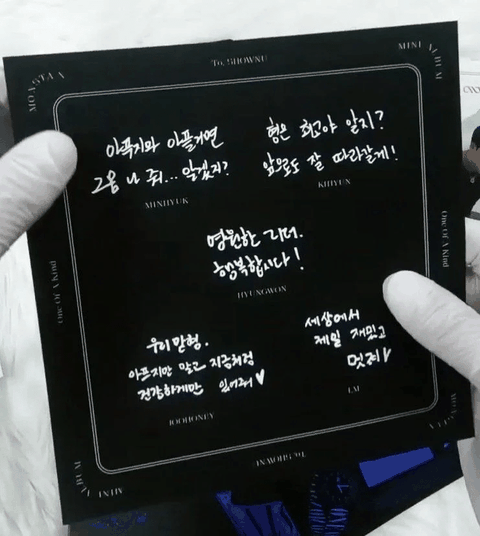 To. SHOWNU
MINI ALBUM
MONSTA X
아프지와 아플거면
그냥 나 줘... 알겠지?
MINHYUK
형은 최고야 알지?
앞으로도 잘 따라갈게!
KIHYUN
One Of A Kind
One Of A Kind
영원한 리더.
행복합시다!
HYUNGWON
우리 맏형.
아프지만 말고 지금처럼
건강하게만 있어줘♥
JOOHONEY
세상에서
제일 재밌고
멋져
I.M
MONSTA X
MINI ALBUM
To. SHOWNU